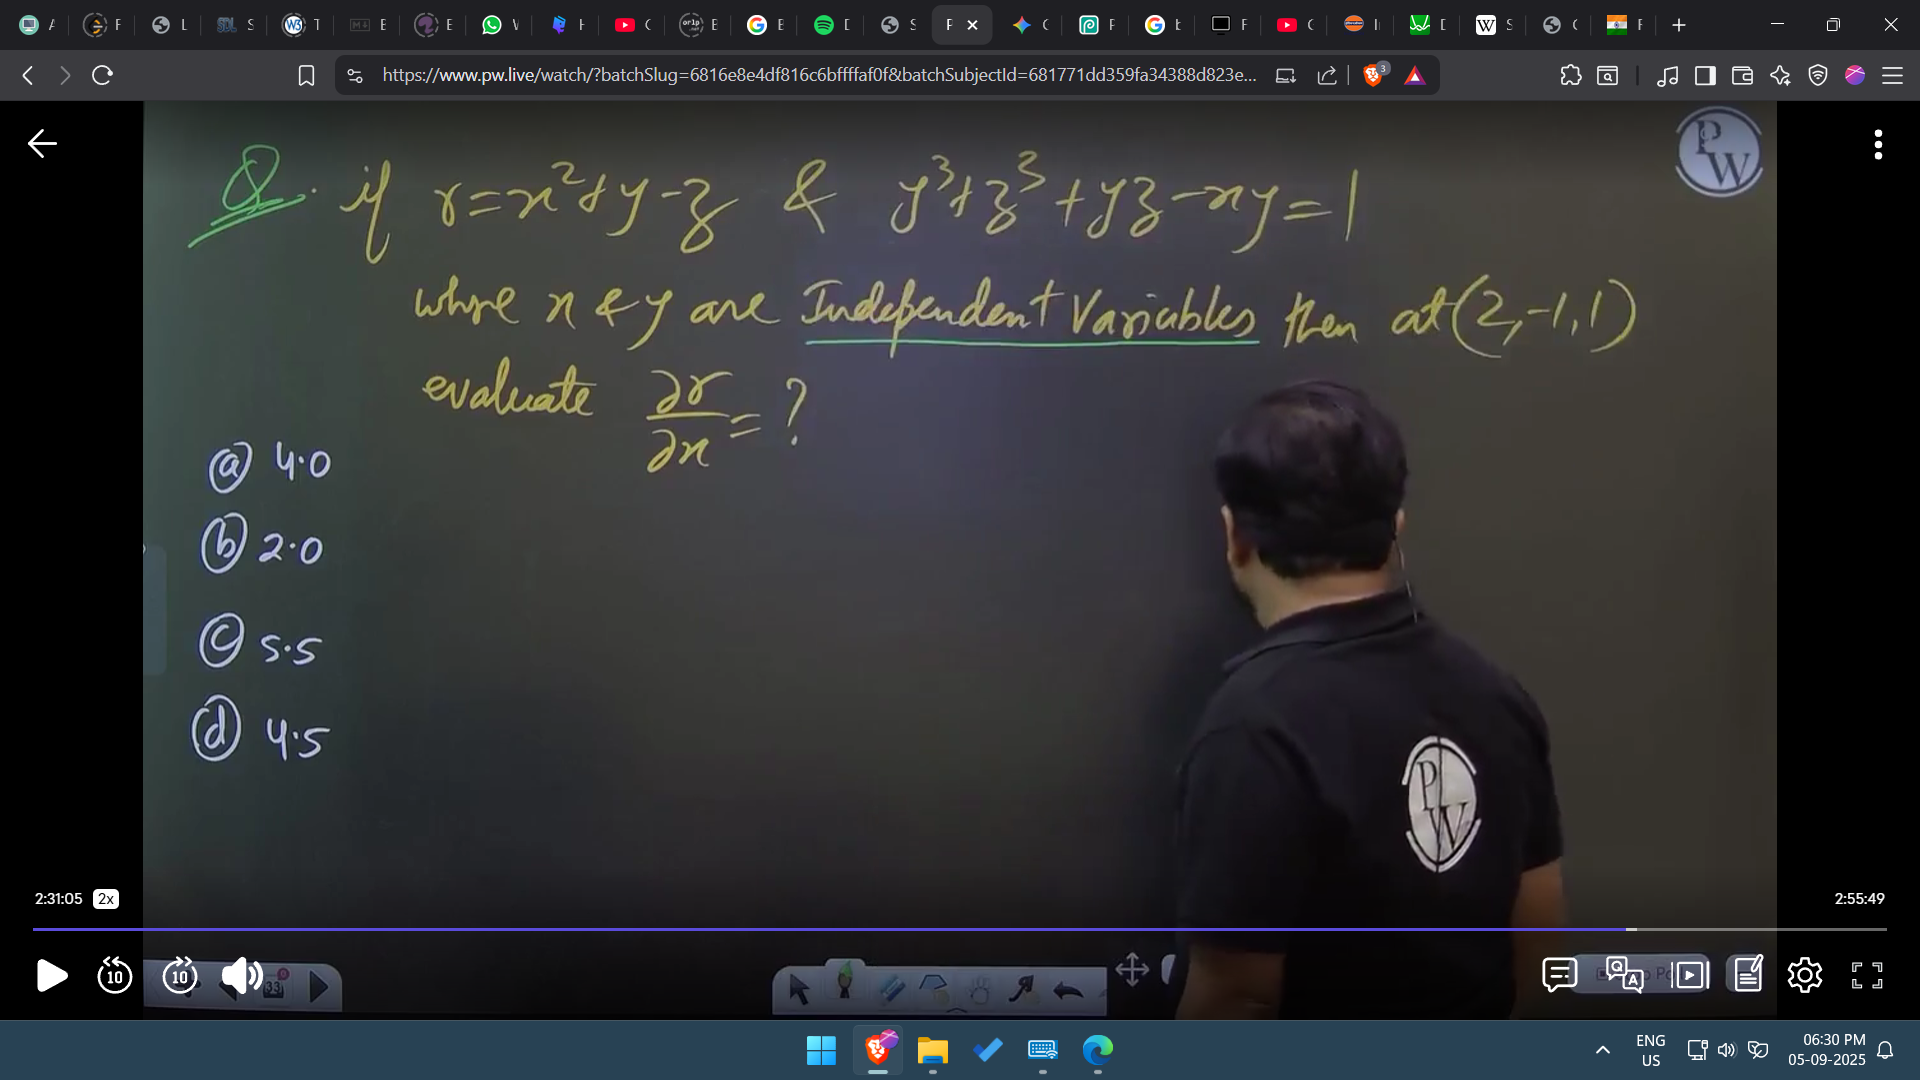 A F L S T E E W H C E E D S F C F E C I D S C F
https://www.pw.live/watch/?batchSlug=6816e8e4df816c6bffffaf0f&batchSubjectId=681771dd359fa34388d823e...
3
PW
Q. if r=x²+y-z & y³+z³+yz-xy=1
where x & y are Independent Variables then at (2,-1,1)
evaluate ∂r/∂x = ?
ⓐ 4.0
ⓑ 2.0
ⓒ 5.5
ⓓ 4.5
PW
2:31:05 2x 2:55:49
10 10 33
ENG 06:30 PM
US 05-09-2025